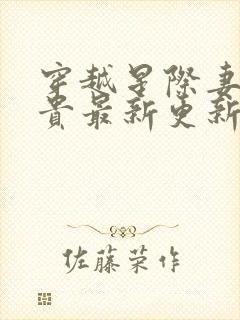 穿越星际妻
贵最新更新
佐藤荣作